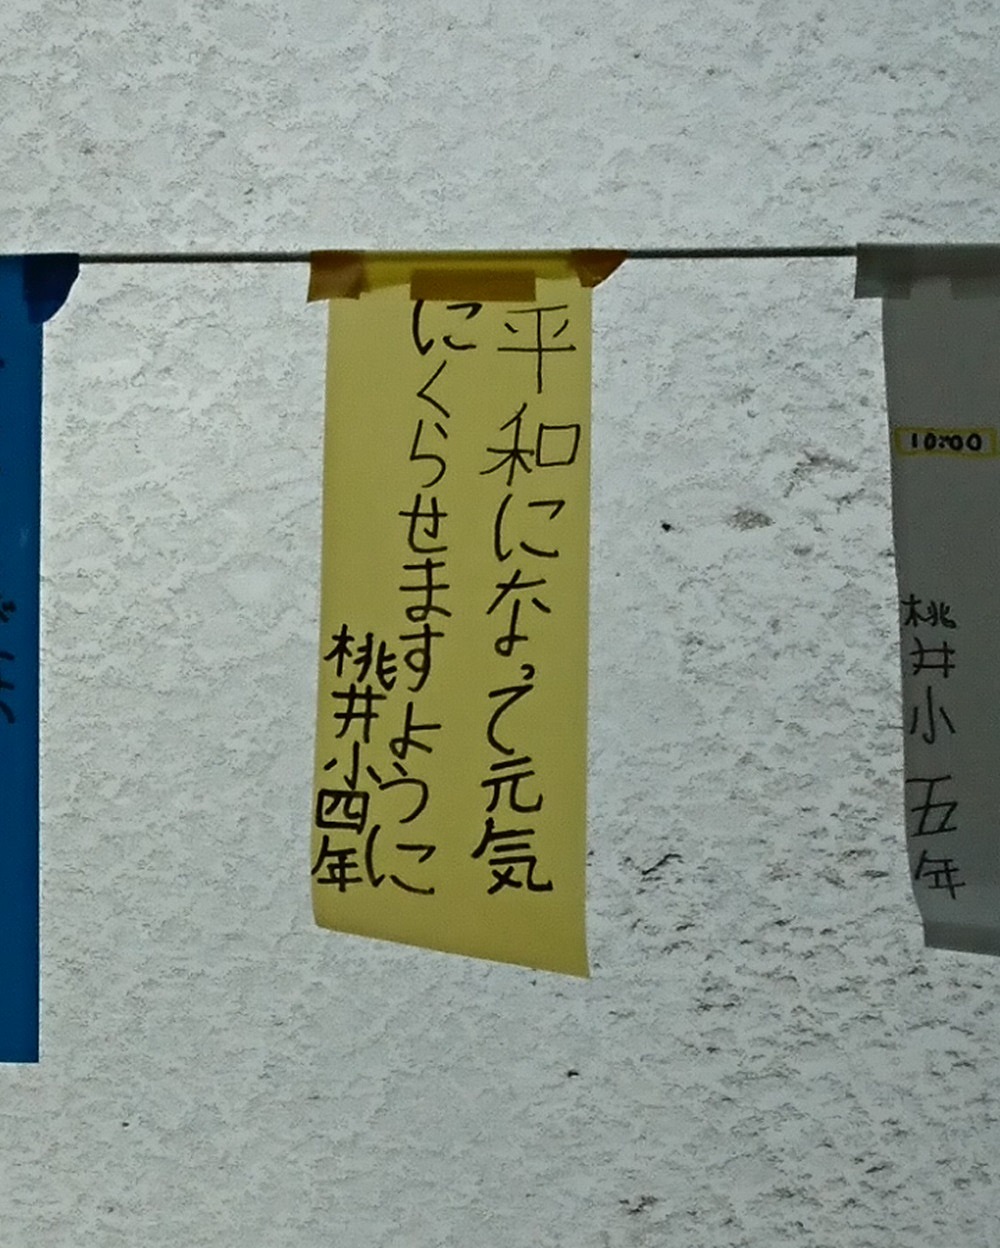 平和になって元気
にくらせますように
桃井小四年
10:00
桃井小五年